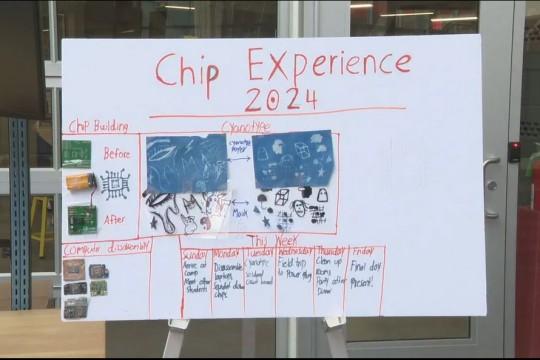 Chip Experience
2024
Chip Building
Before
After
Cyanotype
cyanotype
Mask
Computer disassembly
This Week
Sunday
Arrive at
camp
Meet other
students
Monday
Disassemble
laptops
down
chips
Tuesday
Cyanotype
board
Wednesday
Field trip
to Power
Thursday
Clean up
rooms
Party after
Dinner
Friday
Final day
Present!